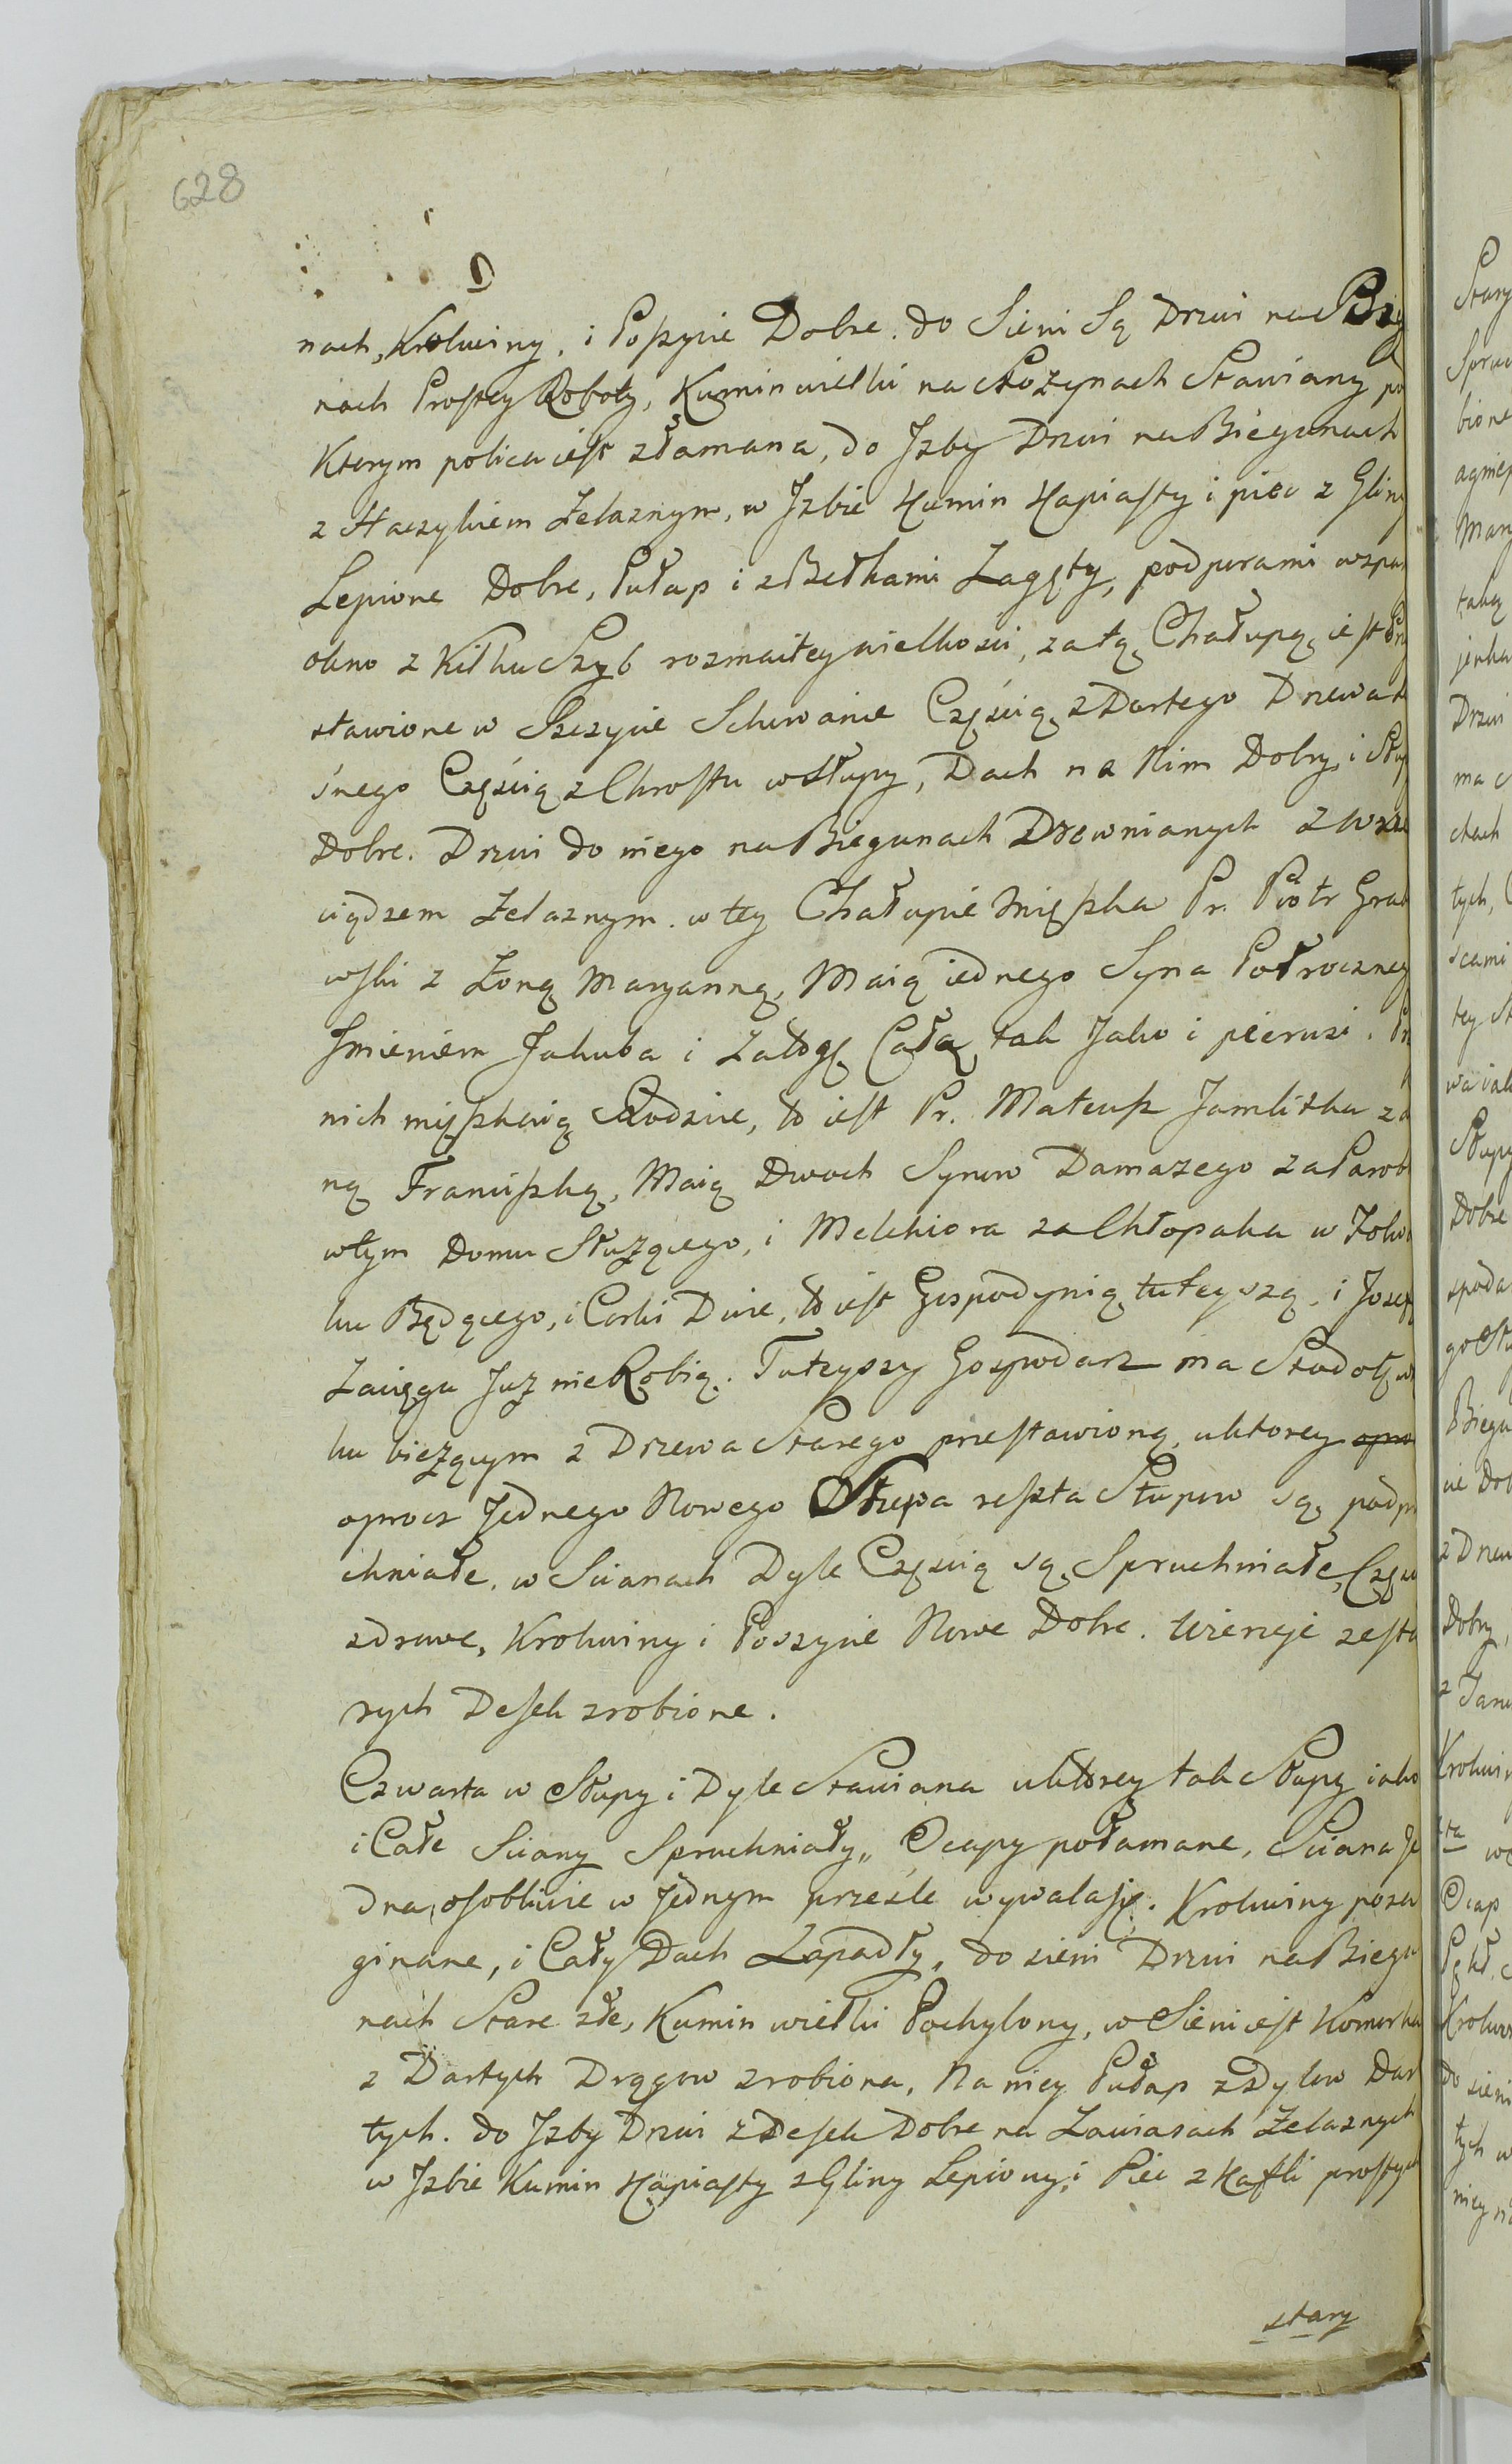 628
nach, Krokwiny, i Poszycie Dobre. do Sieni Są Drzwi na Bieg
nach Prostey Roboty, Kumin wielki na Stozynach Stawiany po
Ktorym polica iest złamana, do Jzby Drzwi na Biegunach
z Haczykiem Zelaznym, w Jzbie Kumin Kapiasty i piec z Gliny
Lepione Dobre, Pułap i z Bełkami Zagęty, podporami wspar
okno z Kilku Szyb rozmaitey wielkosci, za tą Chałupą iest Przy
stawione w Szczycie Schowanie Częścią z Dartego Drzewa
śnego Częścią z Chrostu w słupy, Dach na Nim Dobry i Słup
Dobre. Drzwi do niego na Biegunach Drewnianych z Wrze
ciądzem Zelaznym. w tey Chałupie Mięszka Pr. Piotr Grab
wski z Zoną Maryanną, Maią iednego Syna Połrocznego
Jmieniem Jakuba i Załogę Całą tak Jako i pierwsi. Przy
nich mięszkaią Rodzice, to iest Pr. Mateusz Jamlitka z Zo
ną Franciszką, Maią Dwoch Synow Damazego za Parob
w tym Domu Słuzącego, i Melchiora za Chłopaka w Folwa
ku Będącego, i Corki Dwie, to iest Gospodynią tuteyszą, i Jozefę
Zaciągu Juz nie Robią. Tuteyszy Gospodarz ma Stodołę w
ku bieżącym z Drzewa Starego przestawioną, u ktorey opro
oprocz Jednego Nowego Słupa reszta Słupow są podpru
chniałe, w Scianach Dyle Częścią są Spruchniałe, Częsci
zdrowe, Krokwiny i Poszycie Nowe Dobre. Wierzeje z sta
rych Desek zrobione.
Czwarta w Słupy i Dyle Stawiana u ktorey tak Słupy iako
i Całe Sciany Spruchniały, Ocapy połamane, Sciana Je
dna, osobliwie w Jednym prześle wywala się. Krokwiny poza
ginane, i Cały Dach Zapadły, do sieni Drzwi na Biegu
nach Stare złe, Kumin wielki Pochylony, w Sieni iest Komorka
z Dartych Drągow zrobiona, Na niey Pułap z Dylow Dar
tych. do Jzby Drzwi z Desek Dobre na Zawiasach Zelaznych
w Jzbie Kumin Kapiasty z Gliny Lepiony, i Piec z Kafli prostych
stary